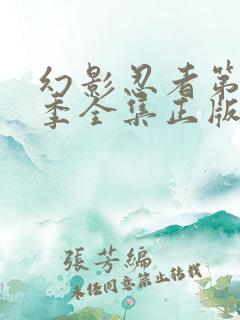 幻影忍者第
季全集正版
張芳編
未经同意禁止转载